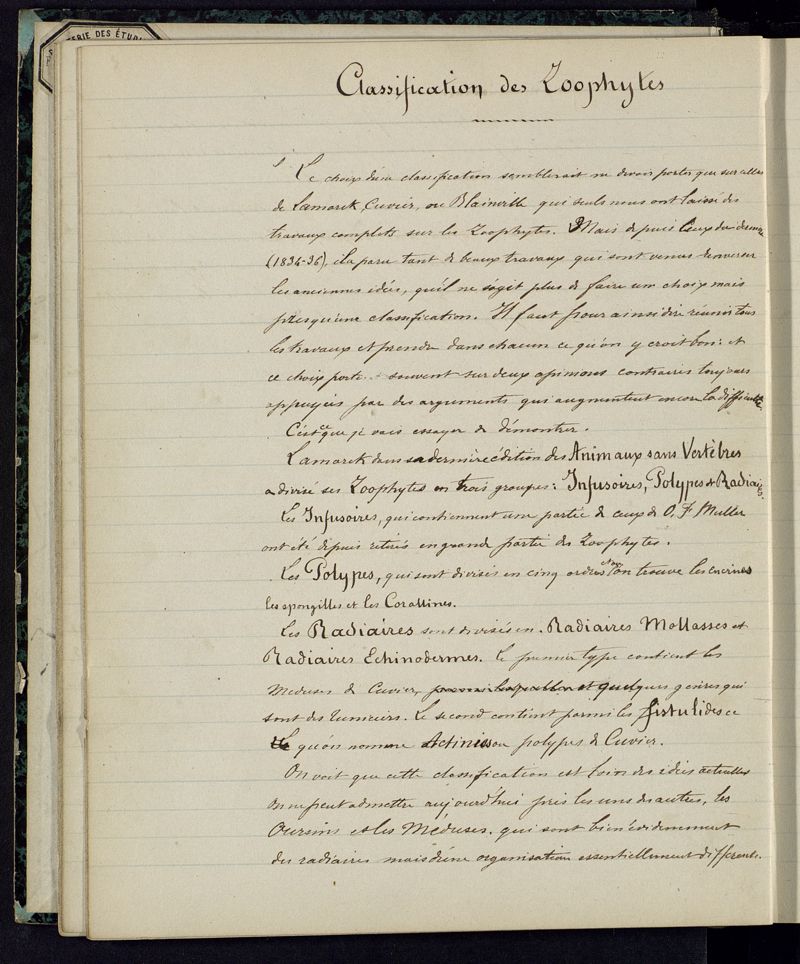 ERIE DES ÉTUD
Classification des Zoophytes
Le choix d'une classification semblerait ne devoir porter que sur celles
de Lamarck, Cuvier, ou Blainville qui seuls nous ont laissé des
travaux complets sur les Zoophytes. Mais depuis ceux du dernier
(1834-36), il a paru tant de beaux travaux qui sont venus renverser
les anciennes idées, qu'il ne s'agit plus de faire un choix mais
presqu'une classification. Il faut pour ainsi dire réunir tous
les travaux et prendre dans chacun ce qu'on y croit bon: et
ce choix porte souvent sur deux opinions contraires toujours
appuyées par des arguments qui augmentent encore la difficulté.
C'est ce que je vais essayer de démontrer.
Lamarck dans sa dernière édition des Animaux sans Vertèbres
a divisé ses Zoophytes en trois groupes: Infusoires, Polypes et Radiaires.
Les Infusoires, qui contiennent une partie de ceux de O. F. Muller
ont été depuis retirés en grande partie des Zoophytes.
Les Polypes, qui sont divisés en cinq ordres où l'on trouve les encrines
les spongilles et les Corallines.
Les Radiaires sont divisés en Radiaires Mollasses et
Radiaires Echinodermes. Le premier type contient les
Meduses de Cuvier, quelques genres qui
sont des Le second contient parmi les fistulides ce
qu'on nomme Actinies ou polypes de Cuvier.
On voit que cette classification est loin des idées actuelles
On ne peut admettre aujourd'hui près les uns des autres, les
Oursins et les Méduses, qui sont bien évidemment
des radiaires mais d'une organisation essentiellement différente.